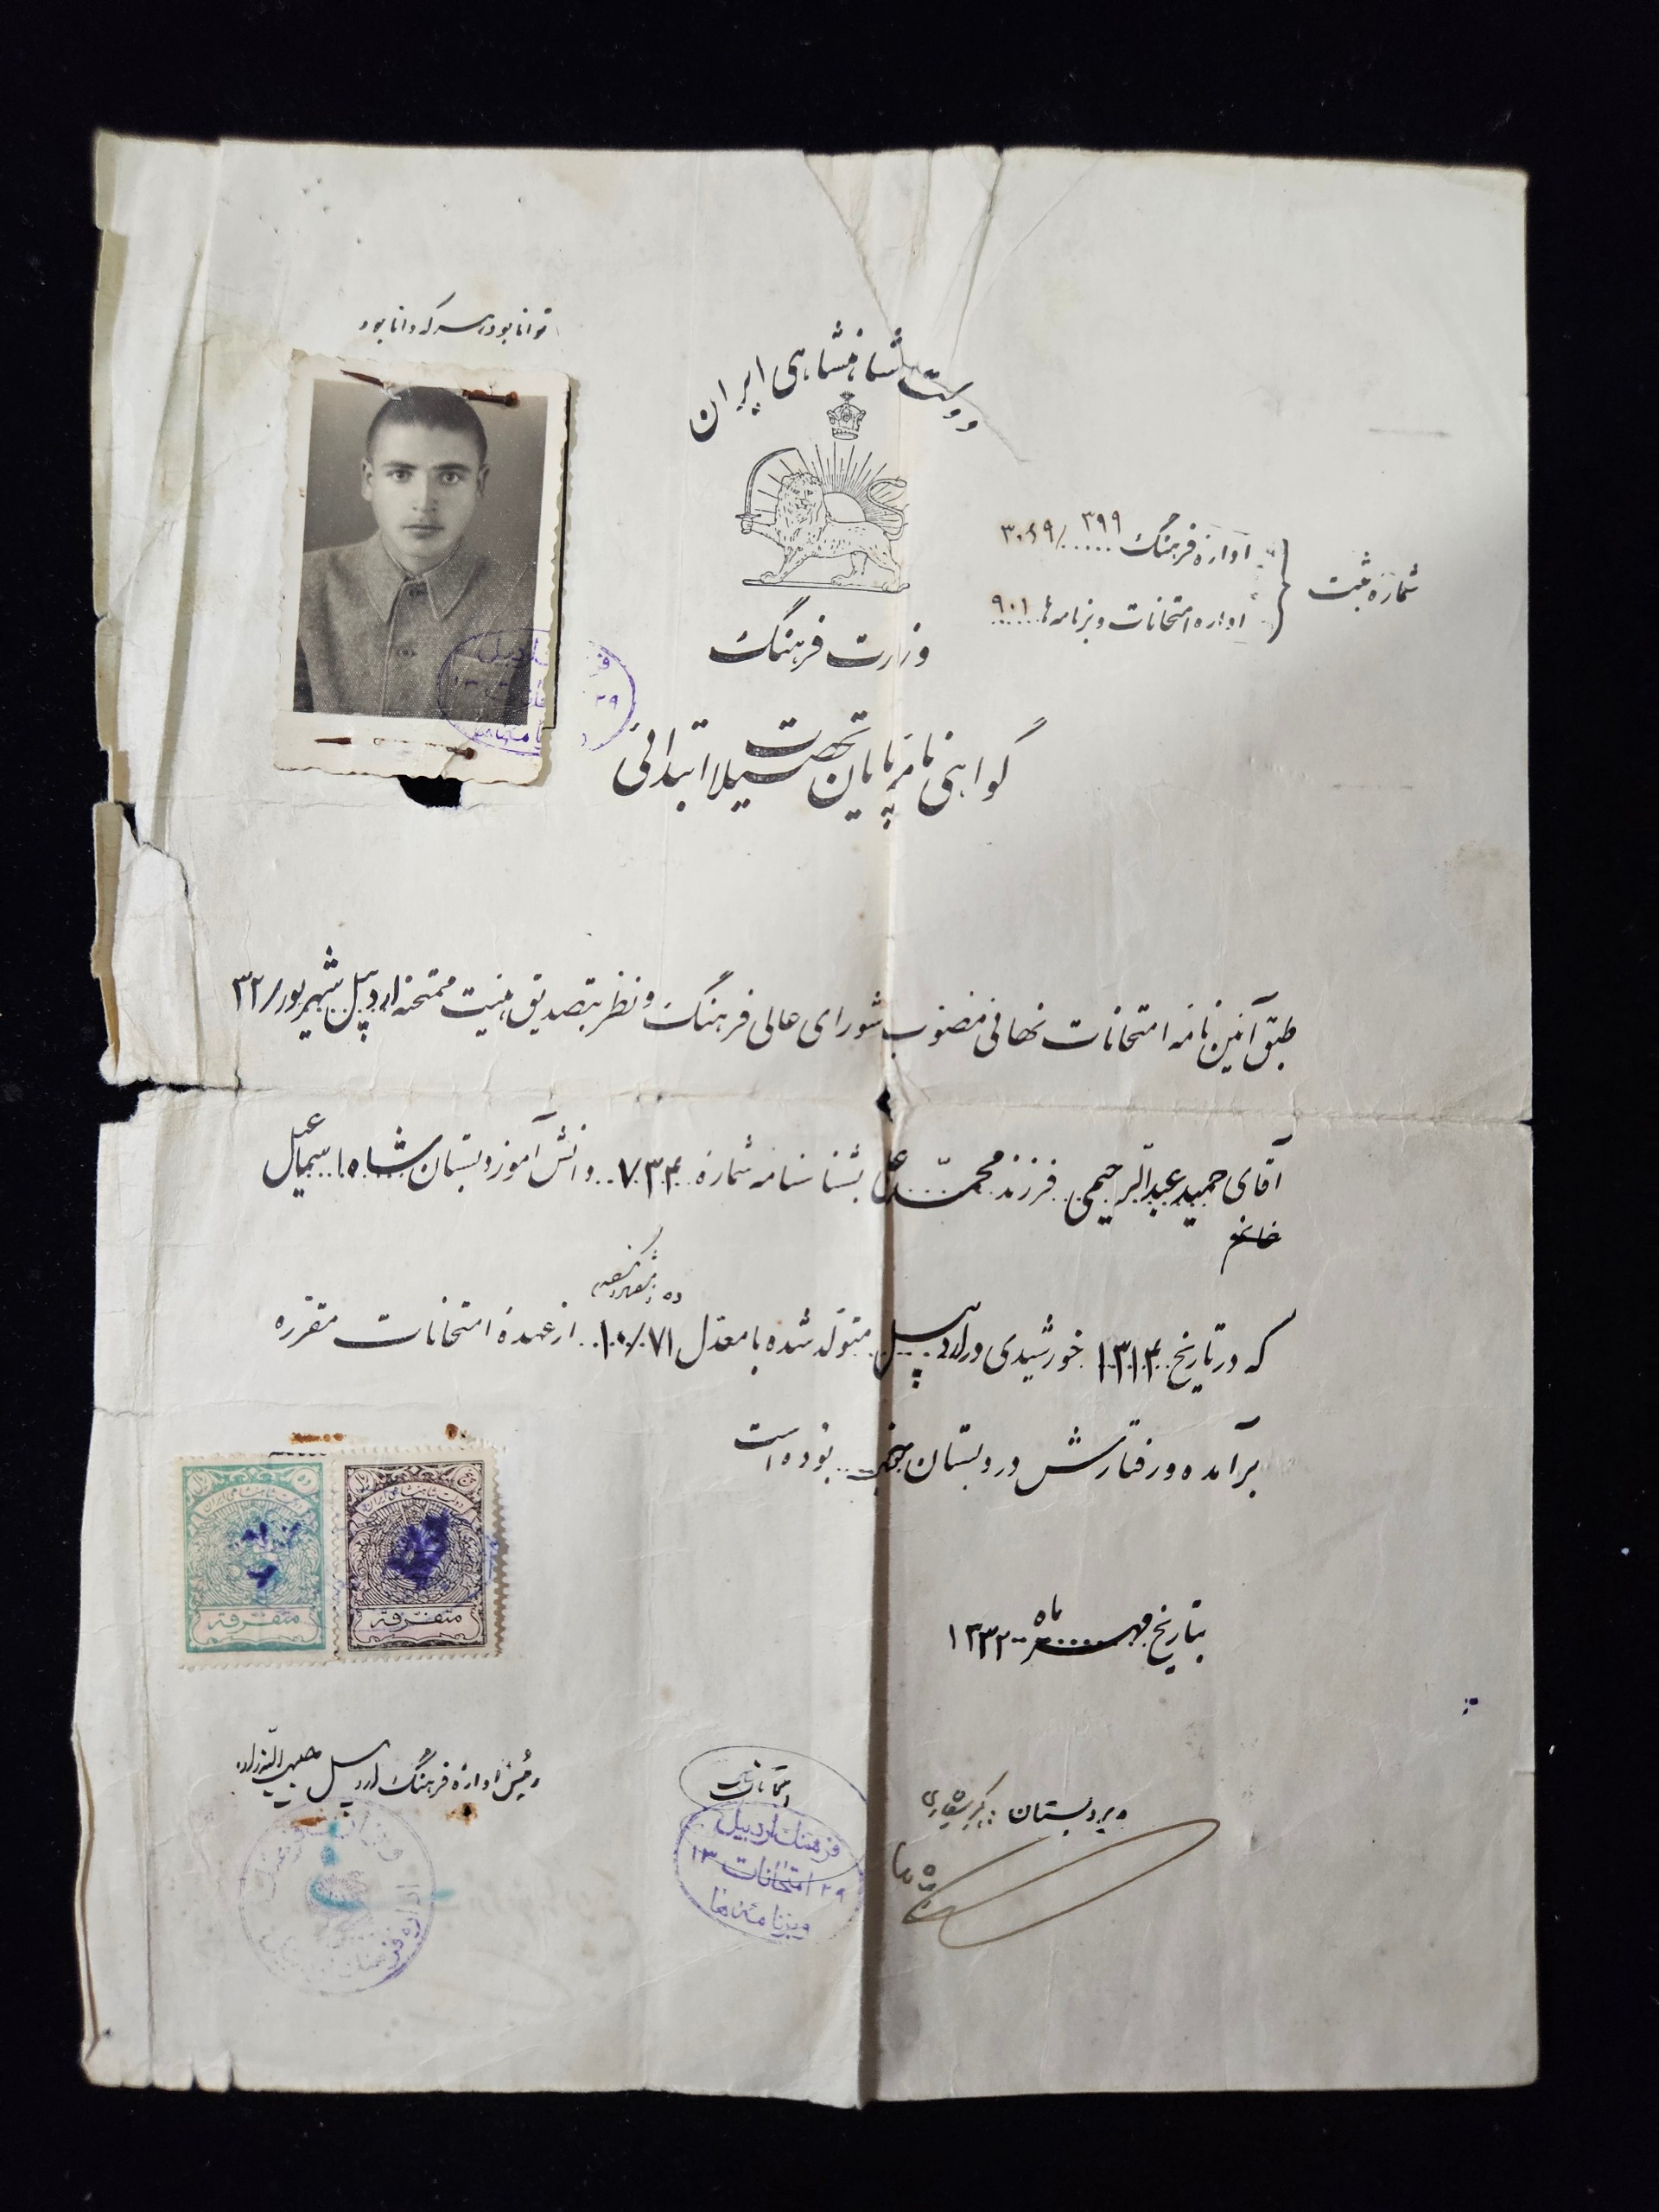 توانا بود هر که دانا بود
دولت شاهنشاهی ایران
شماره ثبت
اداره فرهنگ ۳۹۹/۳۰۶۹
اداره امتحانات و برنامه‌ها ۹۰۱
وزارت فرهنگ
گواهی نامه پایان تحصیلات ابتدائی
طبق آئین نامه امتحانات نهائی مصوب شورای عالی فرهنگ و نظر بتصدیق هیئت ممتحنه اردبیل شهریور ۳۲
آقای حمید عبدالرحیمی فرزند محمد علی بشناسنامه شماره ۷۳۴ دانش آموز دبستان شاه اسمعیل
خانم
که در تاریخ ۱۳۱۴ خورشیدی در اردبیل متولد شده با معدل ۱۰/۷۱ از عهده امتحانات مقرره
برآمده و رفتارش در دبستان خوب بوده است
دولت شاهنشاهی ایران
متفرقه
دولت شاهنشاهی ایران
متفرقه
بتاریخ مهر ماه ۱۳۳۲
رئیس اداره فرهنگ اردبیل
مدیر دبستان:
فرهنگ اردبیل
۲۹ امتحانات ۱۳
و برنامه‌ها